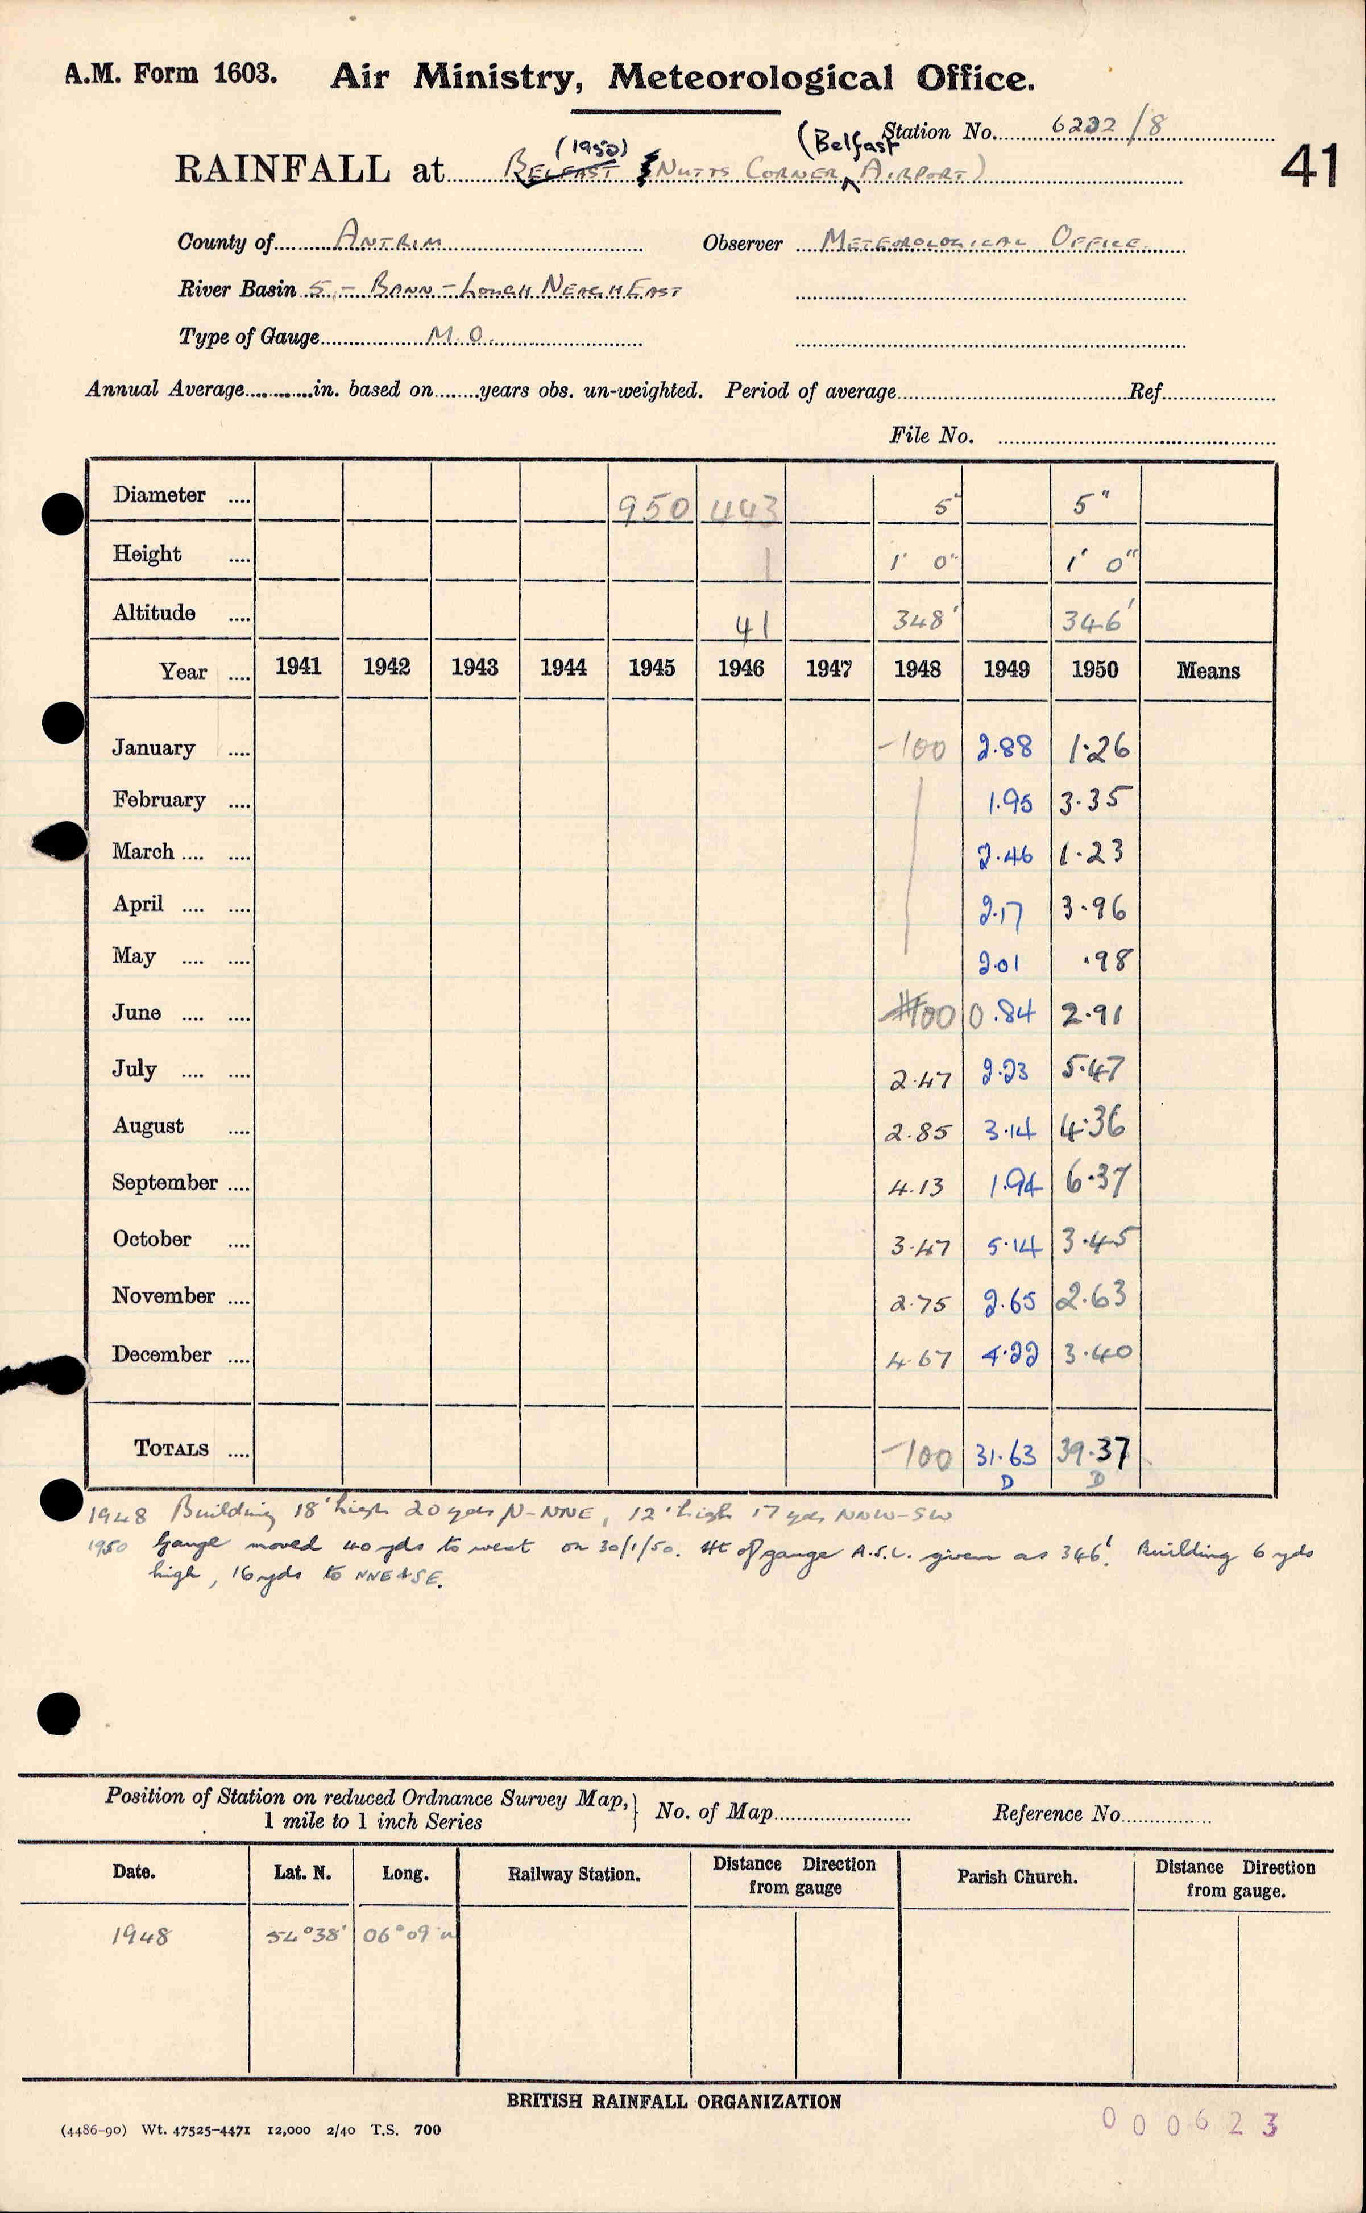 A.M. Form 1603. Air Ministry, Meteorological Office.
Station No. 6232/8
41
(1950) (Belfast
RAINFALL at BELFAST (NUTTS CORNER ^ AIRPORT)
County of ANTRIM Observer METEOROLOGICAL OFFICE
River Basin 5 - BANN - LOUGH NEAGH EAST
Type of Gauge M.O.
Annual Average in. based on years obs. un-weighted. Period of average Ref.
File No.
Diameter 950 443 5" 5"
Height 1 1' 0" 1' 0"
Altitude 41 348' 346'
Year 1941 1942 1943 1944 1945 1946 1947 1948 1949 1950 Means
January -100 2.88 1.26
February 1.95 3.35
March 2.46 1.23
April 2.17 3.96
May 2.01 .98
June 100 0.84 2.91
July 2.47 2.23 5.47
August 2.85 3.14 4.36
September 4.13 1.94 6.37
October 3.47 5.14 3.45
November 2.75 2.65 2.63
December 4.67 4.22 3.40
TOTALS -100 31.63 39.37
D D
1948 Building 18' high 20 yds N-NNE, 12' high 17 yds NNW-SW
1950 Gauge moved 40 yds to west on 30/1/50. Ht of gauge A.S.L. given as 346'. Building 6 yds
high, 16 yds to NNE & SE.
Position of Station on reduced Ordnance Survey Map, 1 mile to 1 inch Series } No. of Map Reference No.
Date. Lat. N. Long. Railway Station. Distance Direction from gauge Parish Church. Distance Direction from gauge.
1948 54°38' 06°09'W
BRITISH RAINFALL ORGANIZATION
(4486-90) Wt. 47525-4471 12,000 2/40 T.S. 700
000623